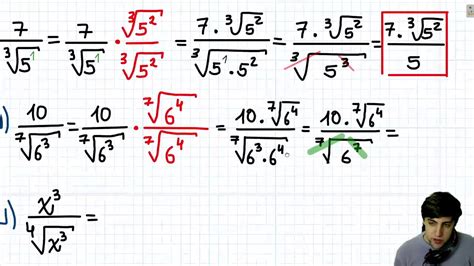 7/∛(5¹) = 7/∛(5¹) · ∛(5²)/∛(5²) = 7·∛(5²)/∛(5¹·5²) = 7·∛(5²)/∛(5³) = 7·∛(5²)/5
) 10/⁷√(6³) = 10/⁷√(6³) · ⁷√(6⁴)/⁷√(6⁴) = 10·⁷√(6⁴)/⁷√(6³·6⁴) = 10·⁷√(6⁴)/⁷√(6⁷) =
) x³/⁴√(x³) =